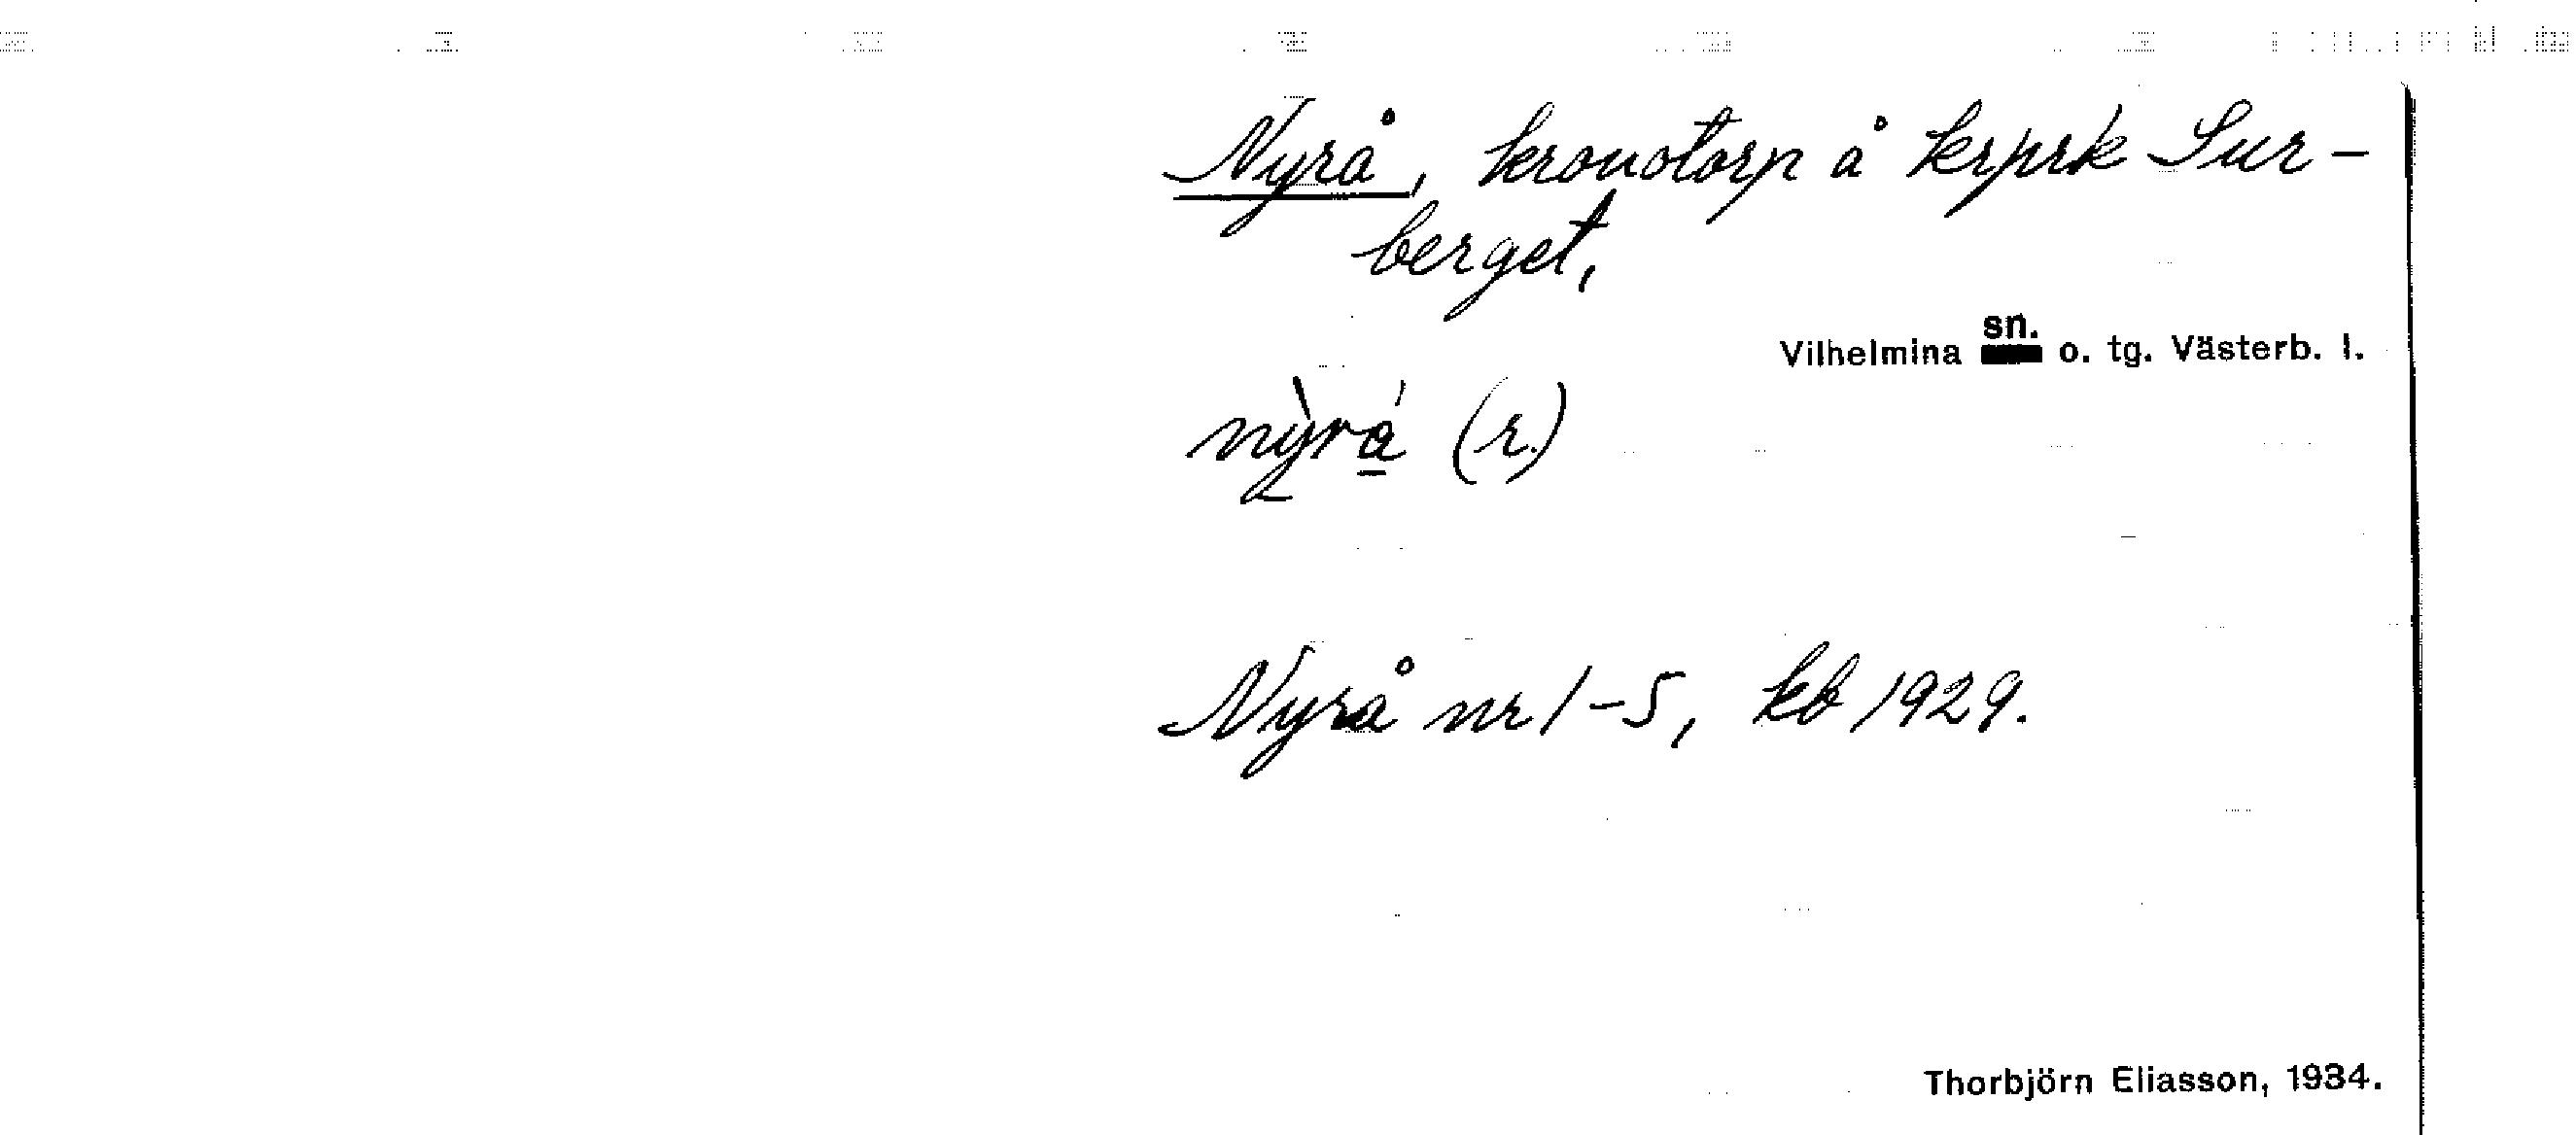 Nyrå, kronotorp å krprk Sur-
berget,
Vilhelmina sn. o. tg. Västerb. l.
(r.)
Nyrå nr 1-5, kb 1929.
Thorbjörn Eliasson, 1934.